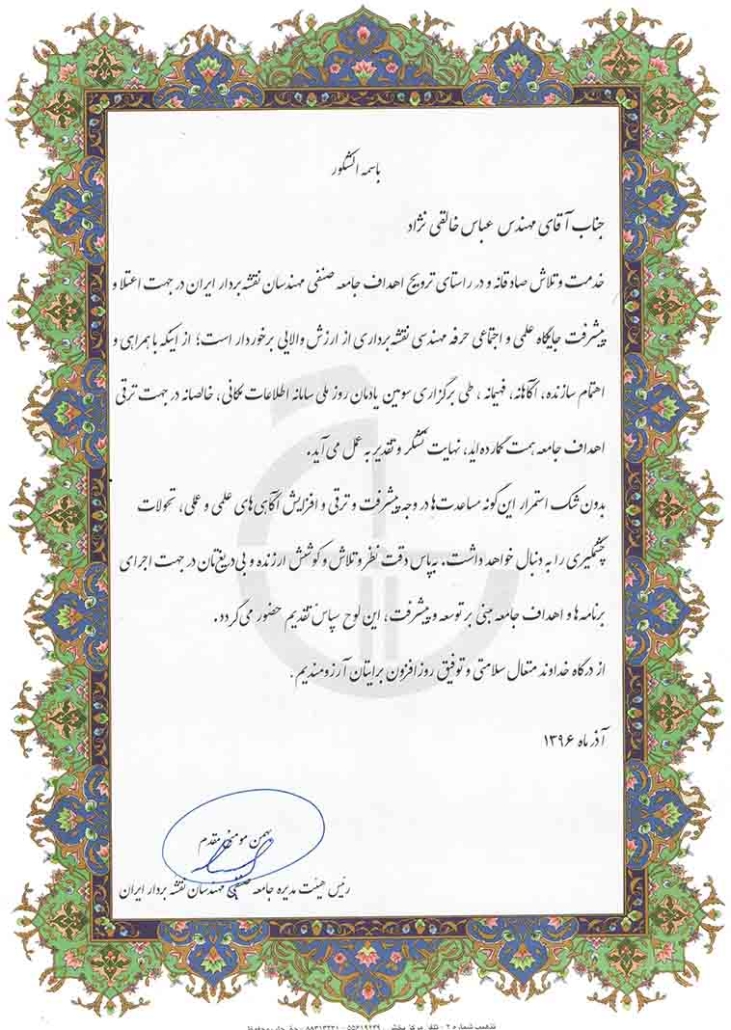 باسمه الشکور
جناب آقای مهندس عباس خالقی نژاد
خدمت و تلاش صادقانه و در راستای ترویج اهداف جامعه صنفی مهندسان نقشه بردار ایران در جهت اعتلا و
پیشرفت جایگاه علمی و اجتماعی حرفه مهندسی نقشه برداری از ارزش والایی برخوردار است؛ از اینکه با همراهی و
اهتمام سازنده، آگاهانه، فهیمانه ، طی برگزاری سومین یادمان روز ملی سامانه اطلاعات مکانی، خالصانه در جهت ترقی
اهداف جامعه همت گمارده‌اید، نهایت تشکر و تقدیر به عمل می آید.
بدون شک استمرار این گونه مساعدت‌ها در وجه پیشرفت و ترقی و افزایش آگاهی های علمی و عملی، تحولات
چشمگیری را به دنبال خواهد داشت. بپاس دقت نظر و تلاش و کوشش ارزنده و بی دریغتان در جهت اجرای
برنامه ها و اهداف جامعه مبنی بر توسعه و پیشرفت، این لوح سپاس تقدیم حضور می گردد.
از درگاه خداوند متعال سلامتی و توفیق روز افزون برایتان آرزومندیم.
آذر ماه ۱۳۹۶
بهمن مومنی مقدم
رئیس هیئت مدیره جامعه صنفی مهندسان نقشه بردار ایران
تذهیب شماره ۲ - تلفن مرکز پخش: